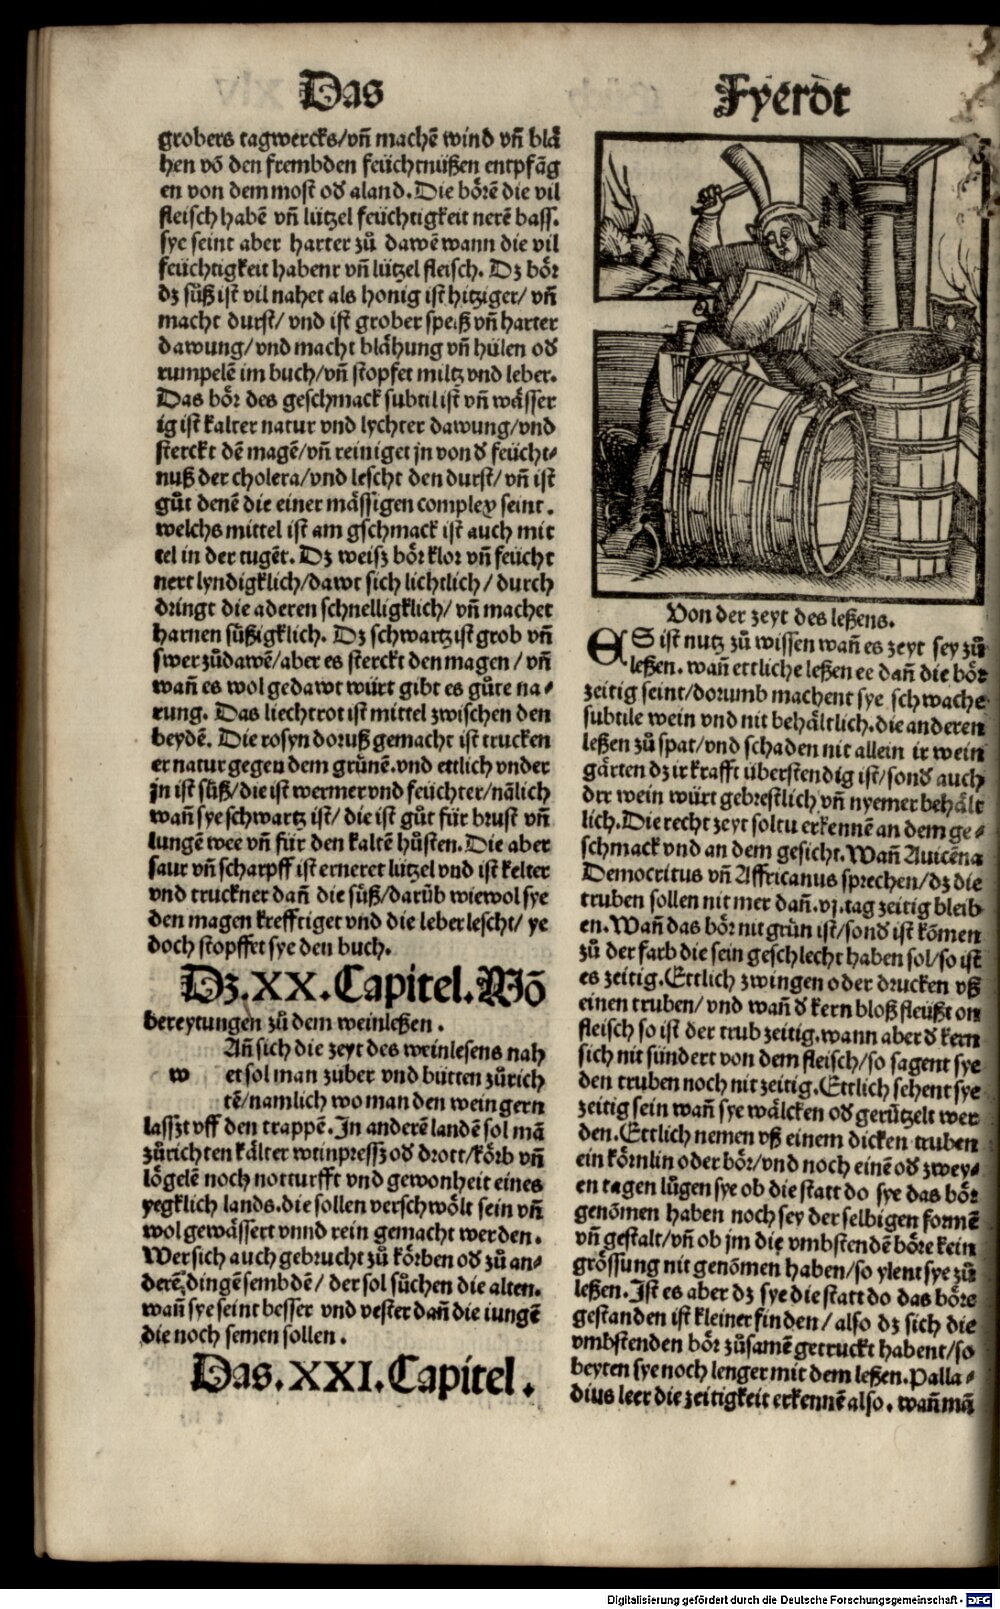 Das
grobers tagwercks/vn̄ machē wind vn̄ blä
hen vō den frembden feüchtnüßen entpfāg
en von dem most oď aland. Die börē die vil
fleisch habē vn̄ lützel feüchtigkeit nerē bass.
sye seint aber harter zů dawē wann die vil
feüchtigkeit habent vn̄ lützel fleisch. Dz bör
dz süß ist vil nahet als honig ist hitziger/ vn̄
macht durst/ vnd ist grober speiß vn̄ harter
dawung/ vnd macht blähung vn̄ hülen oď
rumpelē im buch/vn̄ stopfet miltz vnd leber.
Das bör des geschmack subtil ist vn̄ wässer
ig ist kalter natur vnd lychter dawung/vnd
sterckt dē magē/vn̄ reiniget jn von ď feücht⸗
nuß der cholera/vnd lescht den durst/ vn̄ ist
gůt denē die einer mässigen complex seint.
welchs mittel ist am gschmack ist auch mit
tel in der tugēt. Dz weisz bör klor vn̄ feücht
nert lyndigklich/dawt sich lichtlich/ durch
dringt die aderen schnelligklich/ vn̄ machet
harnen süßigklich. Dz schwartz ist grob vn̄
swer zůdawē/aber es sterckt den magen/ vn̄
wan̄ es wol gedawt würt gibt es gůte na⸗
rung. Das liechtrot ist mittel zwischen den
beydē. Die rosyn doruß gemacht ist trucken
er natur gegen dem grünē.vnd ettlich vnder
jn ist süß/die ist wermer vnd feüchter/nālich
wan̄ sye schwartz ist/ die ist gůt für brust vn̄
lungē wee vn̄ für den kaltē hůsten. Die aber
saur vn̄ scharpff ist erneret lützel vnd ist kelter
vnd truckner dan̄ die süß/darūb wiewol sye
den magen krefftiget vnd die leber lescht/ ye
doch stopffet sye den buch.
Dz.XX.Capitel.Vō
bereytungen zů dem weinleßen.
w
An̄ sich die zeyt des weinlesens nah
et sol man züber vnd bütten zůrich
tē/namlich wo man den wein gern
lasszt vff den trappē. In anderē landē sol mā
zůrichten kälter weinpressz oď drott/körb vn̄
lögelē noch notturfft vnd gewonheit eines
yegklich lands.die sollen verschwölt sein vn̄
wol gewässert vnnd rein gemacht werden.
Wer sich auch gebrucht zů körben oď zů an⸗
derē dingē sembdē/ der sol sůchen die alten.
wan̄ sye seint besser vnd vester dan̄ die iungē
die noch semen sollen.
Das.XXI.Capitel.
Fyerdt
Von der zeyt des leßens.
ES ist nutz zů wissen wan̄ es zeyt sey zů
leßen. wan̄ ettliche leßen ee dan̄ die bör
zeitig seint/dorumb machent sye schwache
subtile wein vnd nit behältlich.die anderen
leßen zů spat/vnd schaden nit allein ir wein
gärten dz ir krafft überstendig ist/sonď auch
der wein würt gebrestlich vn̄ nyemer behält
lich. Die recht zeyt soltu erkennē an dem ge⸗
schmack vnd an dem gesicht. Wan̄ Auicēna
Democritus vn̄ Affricanus sprechen/dz die
truben sollen nit mer dan̄.vj.tag zeitig bleib
en. Wan̄ das bör nit grün ist/sonď ist kōmen
zů der farb die sein geschlecht haben sol/so ist
es zeitig. Ettlich zwingen oder drucken vß
einen truben/ vnd wan̄ ď kern bloß fleüßt on
fleisch so ist der trub zeitig.wann aber ď kern
sich nit sündert von dem fleisch/so sagent sye
den truben noch nit zeitig. Ettlich sehent sye
zeitig sein wan̄ sye wälcken oď gerützelt wer
den. Ettlich nemen vß einem dicken truben
ein körnlin oder bör/vnd noch einē oď zwey⸗
en tagen lůgen sye ob die statt do sye das bör
genōmen haben noch sey der selbigen formē
vn̄ gestalt/vn̄ ob jm die vmbstendē böre kein
grössung nit genōmen haben/so ylent sye zů
leßen. Ist es aber dz sye die statt do das böre
gestanden ist kleiner finden/ also dz sich die
vmbstenden bör zůsamē getruckt habent/so
beyten sye noch lenger mit dem leßen. Palla⸗
dius leer die zeitigkeit erkennē also. wan̄ mā
Digitalisierung gefördert durch die Deutsche Forschungsgemeinschaft - DFG